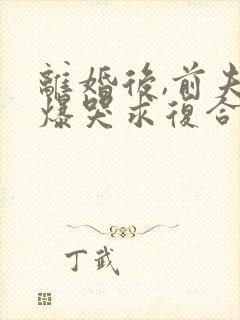 離婚後,前夫
爆哭求復合
丁武